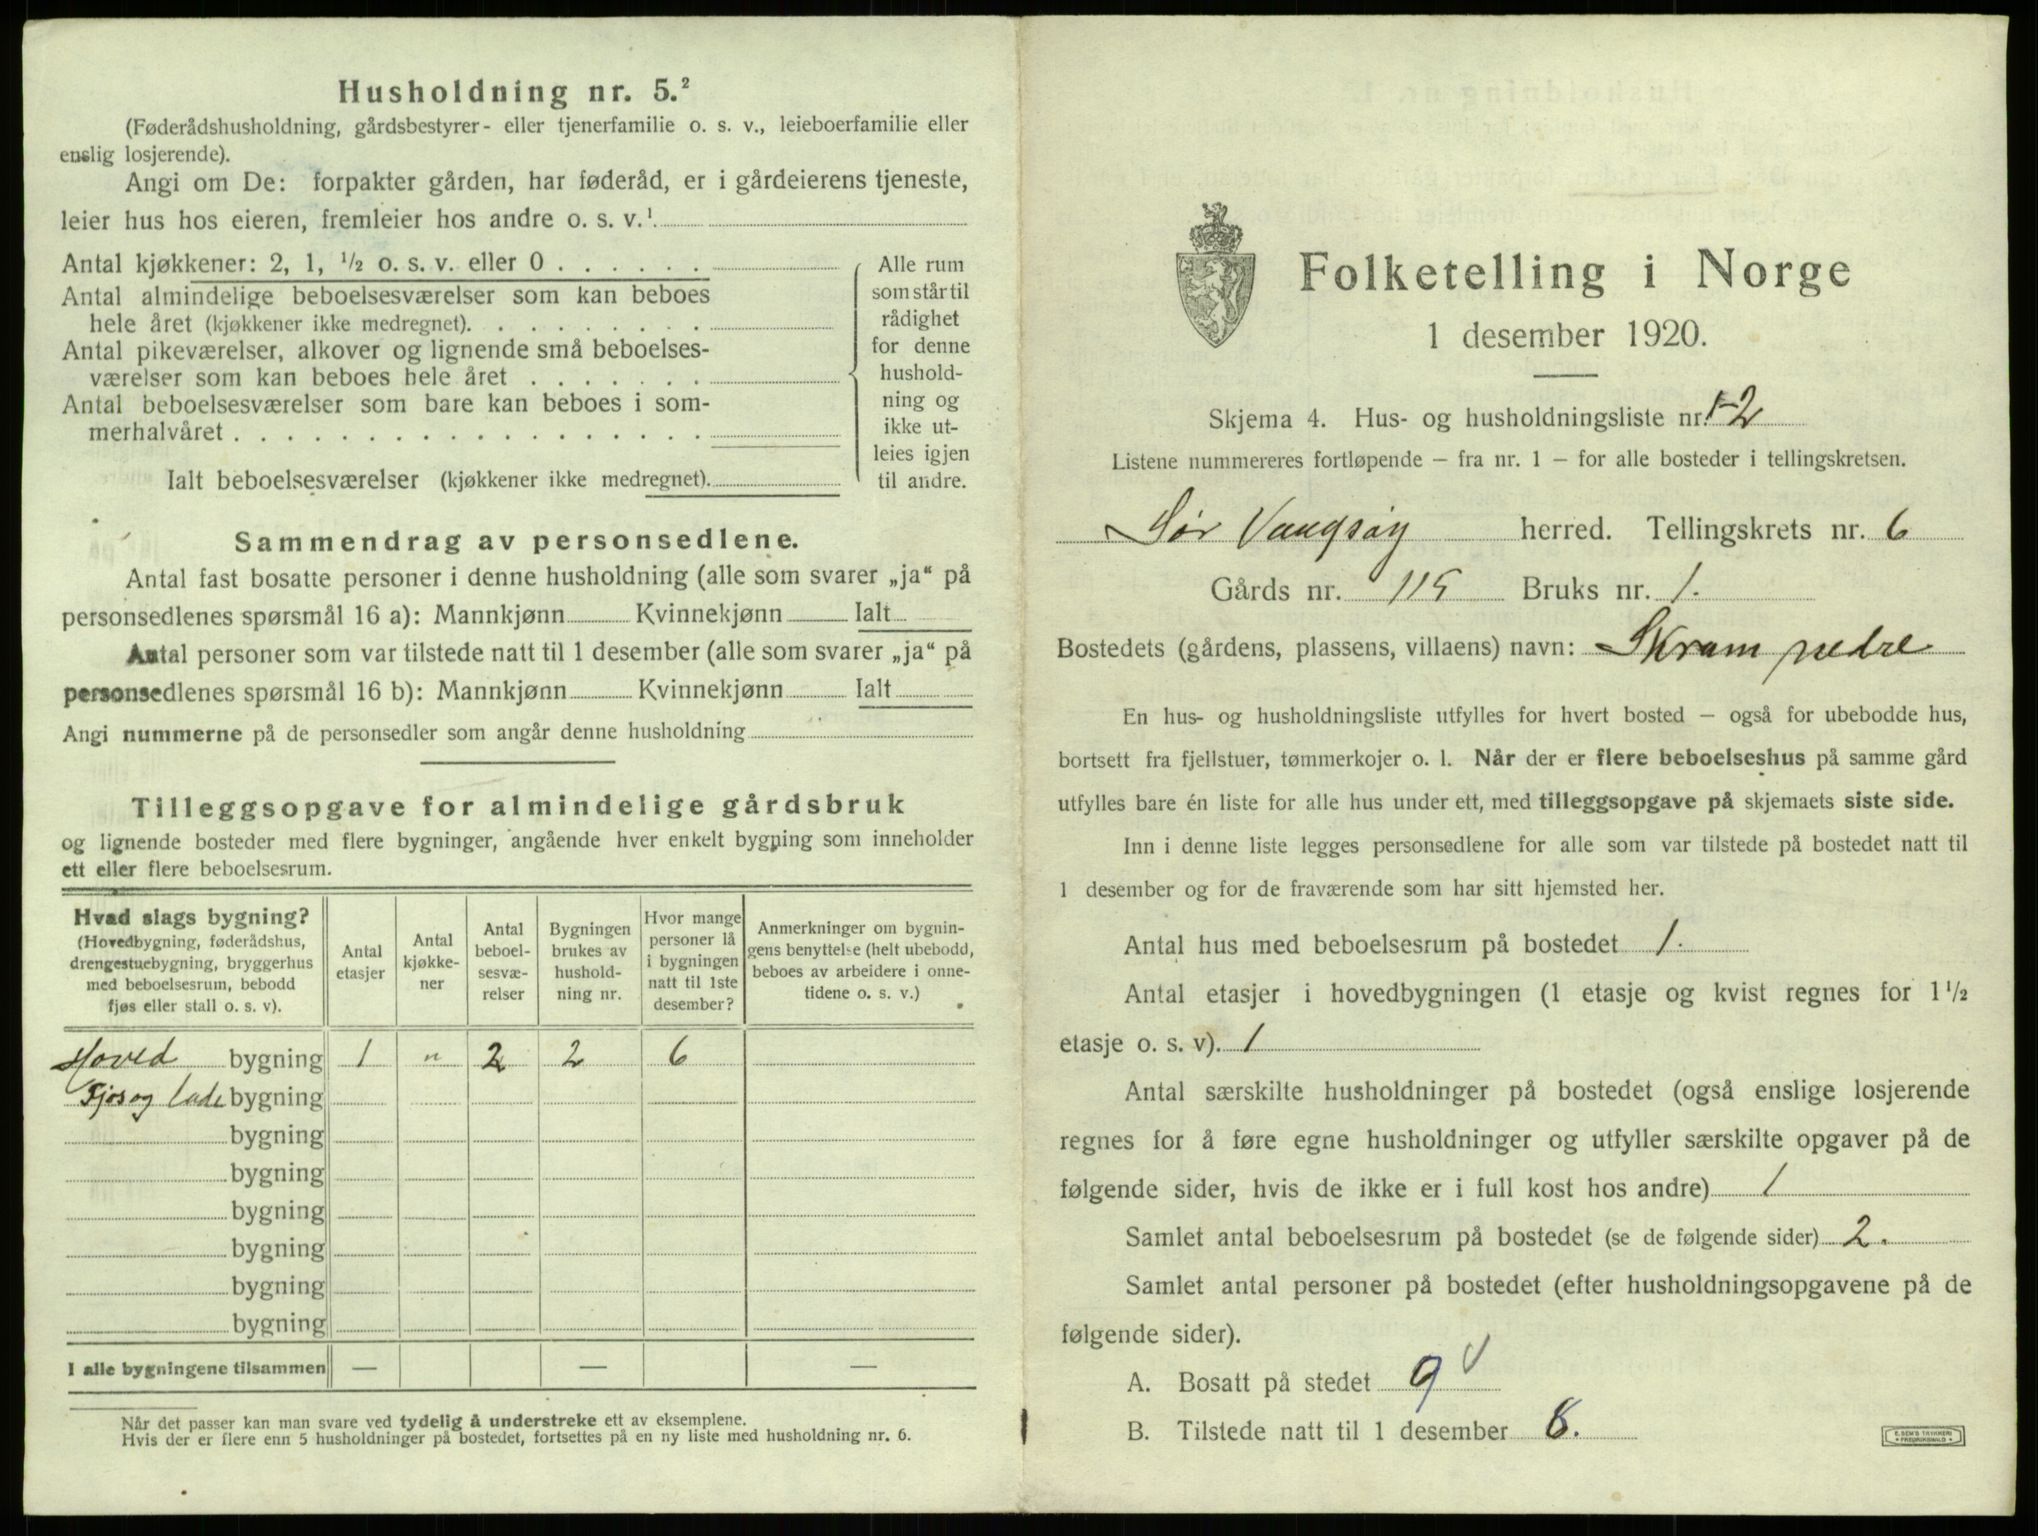 Husholdning nr. 5.²
(Føderådshusholdning, gårdsbestyrer- eller tjenerfamilie o. s. v., leieboerfamilie eller
enslig losjerende).
Angi om De: forpakter gården, har føderåd, er i gårdeierens tjeneste,
leier hus hos eieren, fremleier hos andre o. s. v.¹
Antal kjøkkener: 2, 1, ½ o. s. v. eller 0 . . . . . .
Antal almindelige beboelsesværelser som kan beboes
hele året (kjøkkener ikke medregnet). . . . . . . . .
Antal pikeværelser, alkover og lignende små beboelses-
værelser som kan beboes hele året . . . . . . .
Antal beboelsesværelser som bare kan beboes i som-
merhalvåret . . . . . . . . . . . . . . . . .
Ialt beboelsesværelser (kjøkkener ikke medregnet).
Alle rum
som står til
rådighet
for denne
hushold-
ning og
ikke ut-
leies igjen
til andre.
Sammendrag av personsedlene.
Antal fast bosatte personer i denne husholdning (alle som svarer „ja“ på
personsedlenes spørsmål 16 a): Mannkjønn Kvinnekjønn Ialt
Antal personer som var tilstede natt til 1 desember (alle som svarer „ja“ på
personsedlenes spørsmål 16 b): Mannkjønn Kvinnekjønn Ialt
Angi nummerne på de personsedler som angår denne husholdning
Tilleggsopgave for almindelige gårdsbruk
og lignende bosteder med flere bygninger, angående hver enkelt bygning som inneholder
ett eller flere beboelsesrum.
Hvad slags bygning?
(Hovedbygning, føderådshus,
drengestuebygning, bryggerhus
med beboelsesrum, bebodd
fjøs eller stall o. s. v).
Antal
etasjer
Antal
kjøkke-
ner
Antal
beboel-
sesvæ-
relser
Bygningen
brukes av
hushold-
ning nr.
Hvor mange
personer lå
i bygningen
natt til 1ste
desember?
Anmerkninger om bygnin-
gens benyttelse (helt ubebodd,
beboes av arbeidere i onne-
tidene o. s. v.)
Hoved bygning 1 " 2 2 6
Fjøs og lade bygning
bygning
bygning
bygning
bygning
bygning
bygning
I alle bygningene tilsammen — — —
Når det passer kan man svare ved tydelig å understreke ett av eksemplene.
Hvis der er flere enn 5 husholdninger på bostedet, fortsettes på en ny liste med husholdning nr. 6.
Folketelling i Norge
1 desember 1920.
Skjema 4. Hus- og husholdningsliste nr. 2
Listene nummereres fortløpende – fra nr. 1 – for alle bosteder i tellingskretsen.
Sør Vaagsøy herred. Tellingskrets nr. 6
Gårds nr. 115 Bruks nr. 1.
Bostedets (gårdens, plassens, villaens) navn: Skram nedre
En hus- og husholdningsliste utfylles for hvert bosted – også for ubebodde hus,
bortsett fra fjellstuer, tømmerkojer o. l. Når der er flere beboelseshus på samme gård
utfylles bare én liste for alle hus under ett, med tilleggsopgave på skjemaets siste side.
Inn i denne liste legges personsedlene for alle som var tilstede på bostedet natt til
1 desember og for de fraværende som har sitt hjemsted her.
Antal hus med beboelsesrum på bostedet 1.
Antal etasjer i hovedbygningen (1 etasje og kvist regnes for 1½
etasje o. s. v). 1
Antal særskilte husholdninger på bostedet (også enslige losjerende
regnes for å føre egne husholdninger og utfyller særskilte opgaver på de
følgende sider, hvis de ikke er i full kost hos andre) 1
Samlet antal beboelsesrum på bostedet (se de følgende sider) 2.
Samlet antal personer på bostedet (efter husholdningsopgavene på de
følgende sider).
A. Bosatt på stedet 9
B. Tilstede natt til 1 desember 8.
E. SEM'S TRYKKERI
FREDRIKSHALD